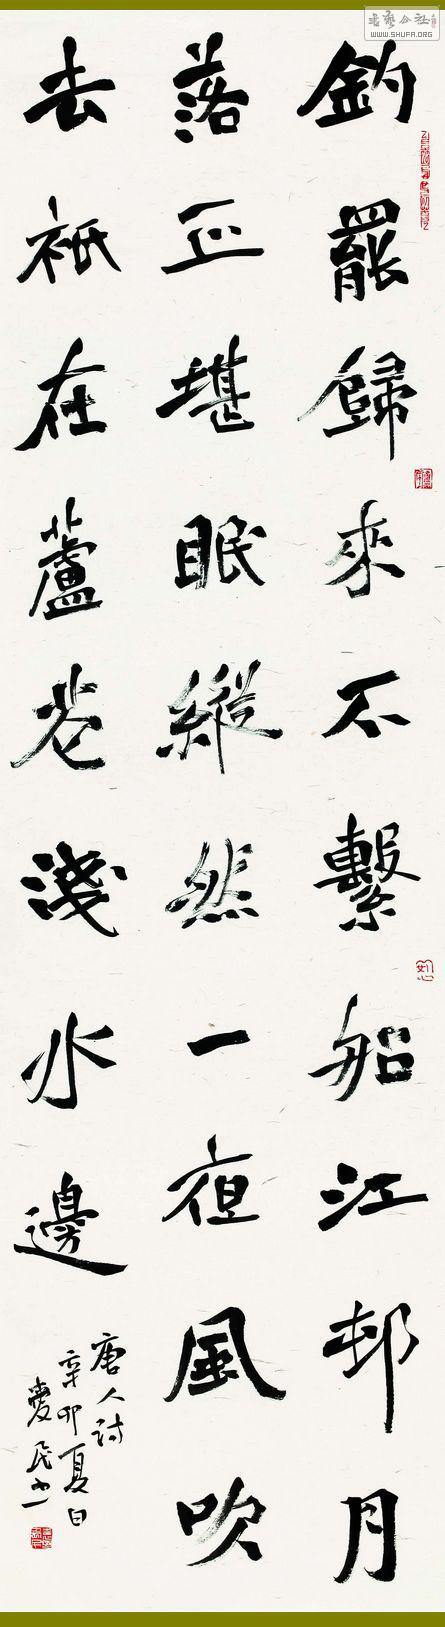 釣罷歸來不繫船江邨月
落正堪眠縱然一夜風吹
去祇在蘆花淺水邊
唐人詩
辛卯夏日
愛民书
書藝公社
WWW.SHUFA.ORG